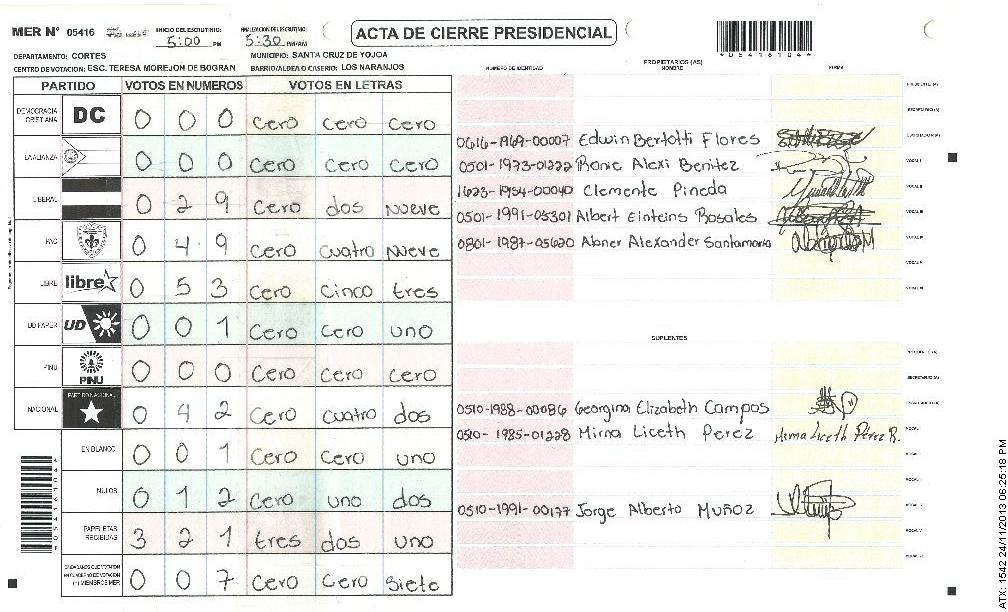 MER N° 05416 INICIO DEL ESCRUTINIO: 5:00 PM FINALIZACION DEL ESCRUTINIO: 5:30 PM/AM
ACTA DE CIERRE PRESIDENCIAL
*054161044
DEPARTAMENTO: CORTES MUNICIPIO: SANTA CRUZ DE YOJOA
CENTRO DE VOTACION: ESC. TERESA MOREJON DE BOGRAN BARRIO/ALDEA O CASERIO: LOS NARANJOS
PARTIDO VOTOS EN NUMEROS VOTOS EN LETRAS
DEMOCRACIA CRISTIANA DC 0 0 0 cero cero cero
LA ALIANZA 0 0 0 cero cero cero
LIBERAL 0 2 9 cero dos nueve
PAC 0 4 9 cero cuatro nueve
LIBRE libre 0 5 3 cero cinco tres
UD FAPER UD 0 0 1 cero cero uno
PINU PINU 0 0 0 cero cero cero
NACIONAL PARTIDO NACIONAL 0 4 2 cero cuatro dos
EN BLANCO 0 0 1 cero cero uno
NULOS 0 1 2 cero uno dos
PAPELETAS RECIBIDAS 3 2 1 tres dos uno
CIUDADANOS QUE VOTARON EN CUADERNO DE VOTACION (+) MIEMBROS MER 0 0 7 cero cero siete
NUMERO DE IDENTIDAD PROPIETARIOS (AS) NOMBRE FIRMA
PRESIDENTE (A)
SECRETARIO (A)
0616-1969-00007 Edwin Bertotti Flores ESCRUTADOR (A)
0501-1973-01222 Ronie Alexi Benitez VOCAL I
1623-1954-00040 Clemente Pineda VOCAL II
0501-1991-05301 Albert Einteins Rosales VOCAL III
0801-1987-05620 Abner Alexander Santamaria VOCAL IV
VOCAL V
SUPLENTES
PRESIDENTE (A)
SECRETARIO (A)
0510-1988-00086 Georgina Elizabeth Campos ESCRUTADOR (A)
0510-1985-01228 Mirna Liceth Perez Mirna Liceth Pérez R. VOCAL I
0510-1991-00177 Jorge Alberto Muñoz
ATX: 1542 24/11/2013 06:25:18 PM